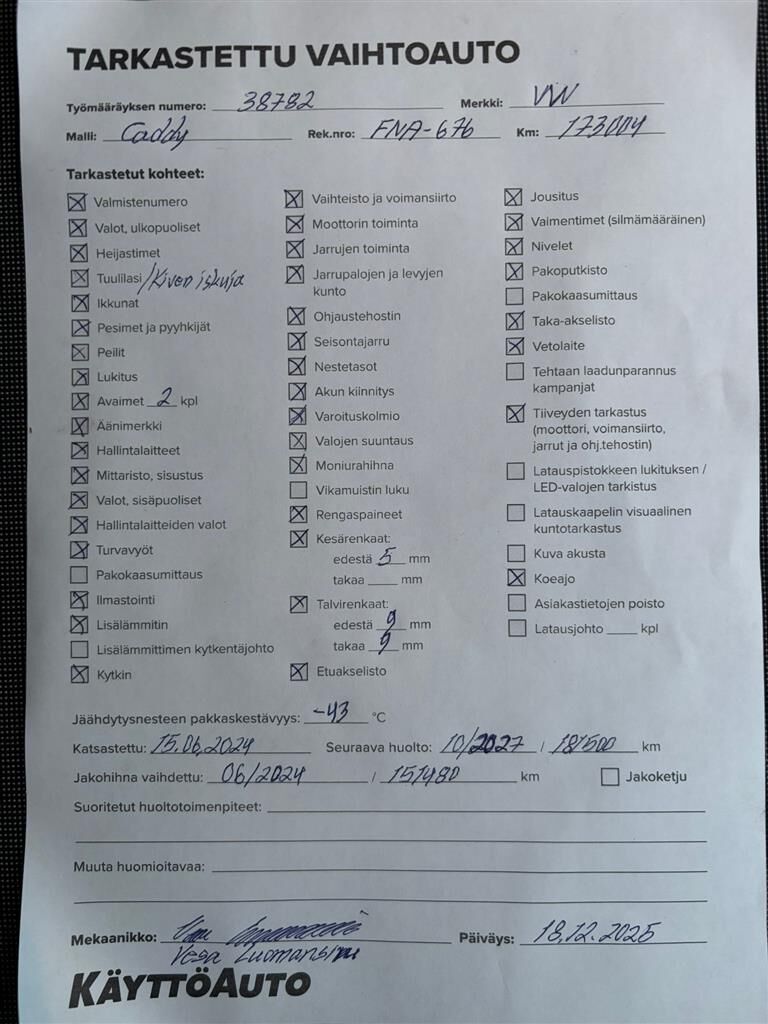 TARKASTETTU VAIHTOAUTO
Työmääräyksen numero: 38782 Merkki: VW
Malli: Caddy Rek.nro: FNA-676 Km: 173004
Tarkastetut kohteet:
Valmistenumero
Valot, ulkopuoliset
Heijastimet
Tuulilasi /Kiven iskuja
Ikkunat
Pesimet ja pyyhkijät
Peilit
Lukitus
Avaimet 2 kpl
Äänimerkki
Hallintalaitteet
Mittaristo, sisustus
Valot, sisäpuoliset
Hallintalaitteiden valot
Turvavyöt
Pakokaasumittaus
Ilmastointi
Lisälämmitin
Lisälämmittimen kytkentäjohto
Kytkin
Vaihteisto ja voimansiirto
Moottorin toiminta
Jarrujen toiminta
Jarrupalojen ja levyjen
kunto
Ohjaustehostin
Seisontajarru
Nestetasot
Akun kiinnitys
Varoituskolmio
Valojen suuntaus
Moniurahihna
Vikamuistin luku
Rengaspaineet
Kesärenkaat:
edestä 5 mm
takaa mm
Talvirenkaat:
edestä 9 mm
takaa 9 mm
Etuakselisto
Jousitus
Vaimentimet (silmämääräinen)
Nivelet
Pakoputkisto
Pakokaasumittaus
Taka-akselisto
Vetolaite
Tehtaan laadunparannus
kampanjat
Tiiveyden tarkastus
(moottori, voimansiirto,
jarrut ja ohj.tehostin)
Latauspistokkeen lukituksen /
LED-valojen tarkistus
Latauskaapelin visuaalinen
kuntotarkastus
Kuva akusta
Koeajo
Asiakastietojen poisto
Latausjohto kpl
Jäähdytysnesteen pakkaskestävyys: -43 °C
Katsastettu: 15.06.2024 Seuraava huolto: 10/2027 / 181500 km
Jakohihna vaihdettu: 06/2024 / 151480 km Jakoketju
Suoritetut huoltotoimenpiteet:
Muuta huomioitavaa:
Mekaanikko: Päiväys: 18.12.2025
Vesa
KÄYTTÖAUTO